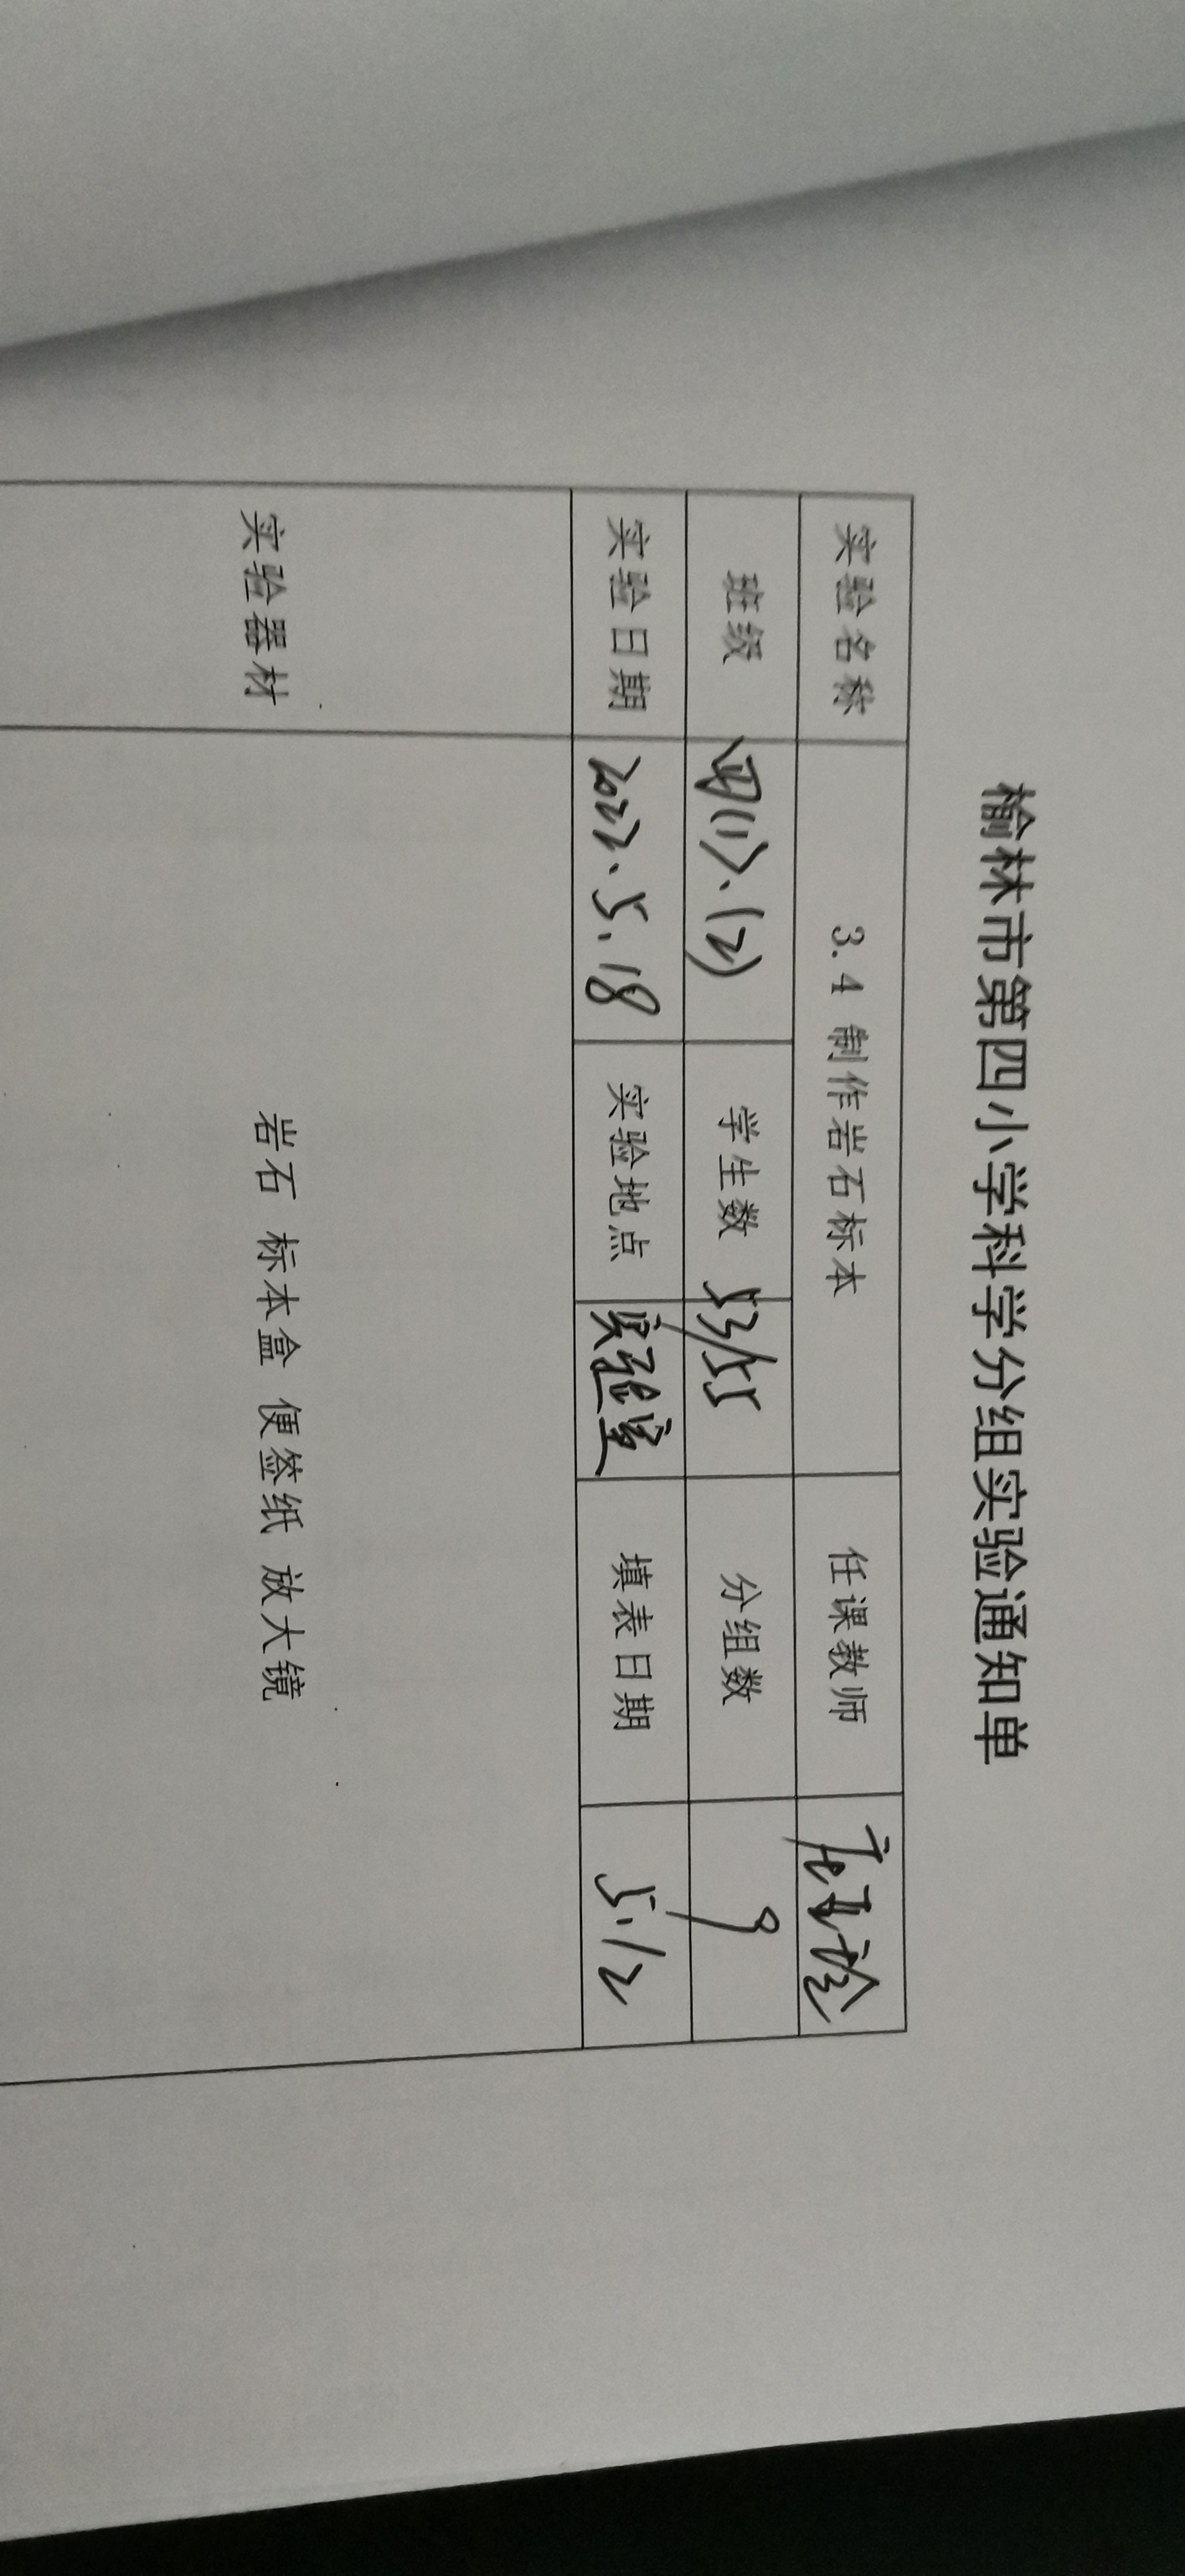 榆林市第四小学科学分组实验通知单
实验名称 3.4 制作岩石标本 任课教师
班级 四(1).(2) 学生数 53/55 分组数 9
实验日期 2022.5.18 实验地点 实验室 填表日期 5.12
实验器材 岩石 标本盒 便签纸 放大镜